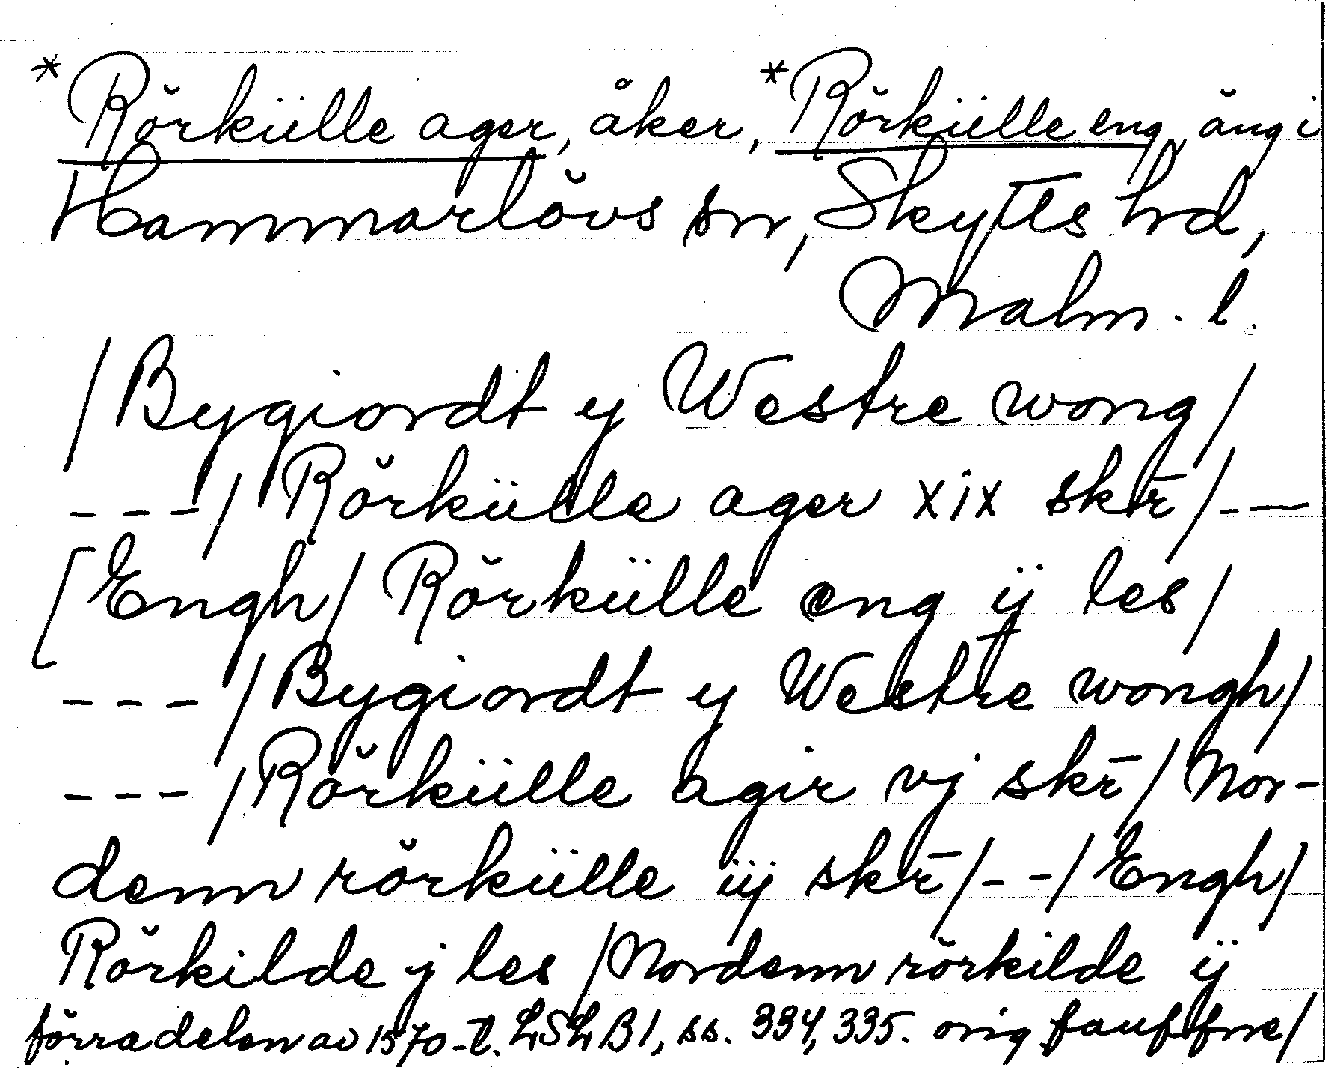 *Rörkülle ager, åker, *Rörkülle eng, äng i
Hammarlövs sn, Skytts hd,
Malm. l.
/Bygiordt y Westre wong/
---/ Rörkülle ager xix skr̄/--
[Engh/ Rörkülle eng ÿ les/
---/Bygiordt y Westre wongh/
---/Rörkülle agir vj skr̄/Nor-
denn rörkülle iij skr̄/--/Engh/
Rörkilde j les /Nordenn rörkilde ÿ
förra delen av 1570-t. LSLB1, ss. 334, 335. orig